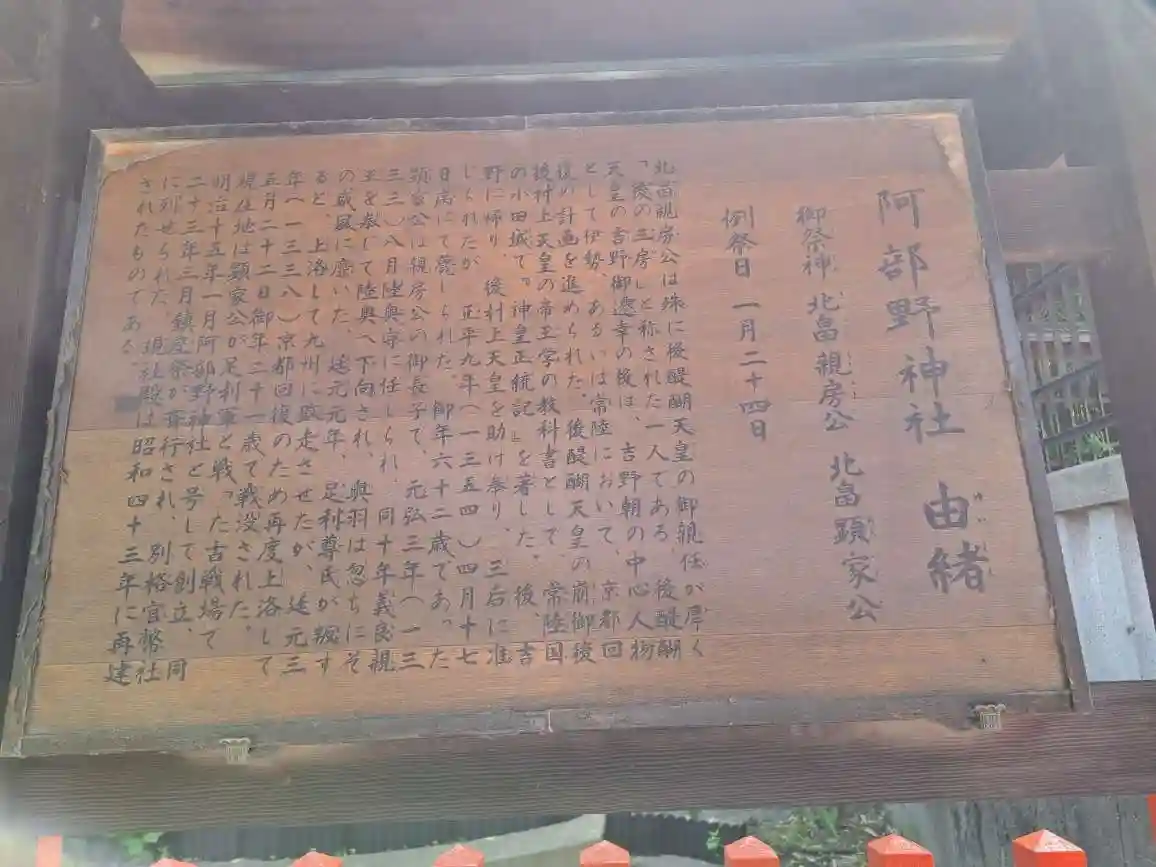 阿部野神社 由緒
御祭神 北畠親房公 北畠顕家公
例祭日 一月二十四日
北畠親房公は殊に後醍醐天皇の御親任が厚く
「後の三房」と称された一人である。後醍醐
天皇の吉野御遷幸の後は、吉野朝の中心人物
として伊勢、あるいは常陸において、京都回
復の計画を進められた。後醍醐天皇の崩御後
後村上天皇の帝王学の教科書として、常陸国
の小田城で『神皇正統記』を著した。後、吉
野に帰り、後村上天皇を助け奉り、三后に准
じられたが、正平九年（一三五四）四月十七
日高にて薨じられた。御年六十二歳であった
顕家公は親房公の御長子で、元弘三年（一三
三三）八月陸奥守に任じられ、同十年義良親
王を奉じて陸奥へ下向され、奥羽は忽ちにそ
の威風に靡いた。延元元年、足利尊氏が叛す
ると、上洛して九州に敗走させたが、延元三
年（一三三八）京都回復のため再度上洛して
五月二十二日御年二十一歳で戦没された。
現在地は顕家公が足利軍と戦った古戦場で
明治十五年一月阿部野神社と号して創立、同
二十三年三月鎮座祭が斎行され、別格官幣社
に列せられた。現社殿は昭和四十三年に再建
されたものである。